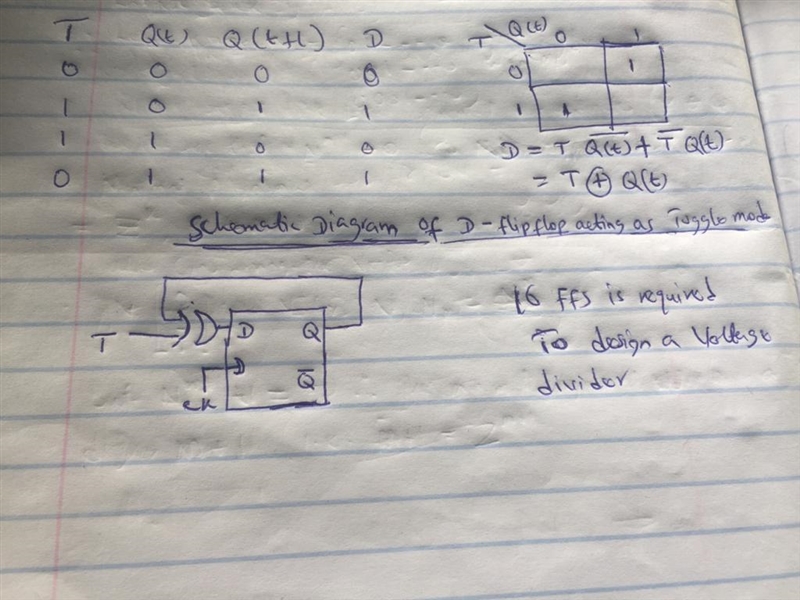 T Q(t) Q(t+1) D
0 0 0 0
1 0 1 1
1 1 0 0
0 1 1 1
T Q(t) 0 1
0 1
1 1
D = T Q̅(̅t̅)̅ + T̅ Q(t)
= T ⊕ Q(t)
Schematic Diagram of D-flipflop acting as Toggle mode
T D Q
CK Q̅
16 FFS is required
To design a Voltage
divider